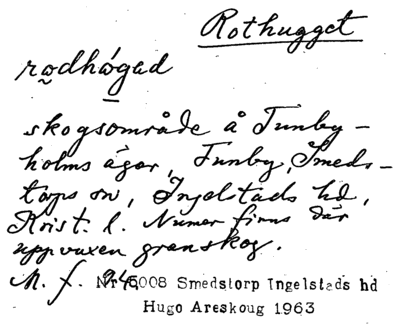 Rothugget
rodhǫ́gad
skogsområde å Tunby-
holms ägor, Tunby, Smeds-
torps sn, Ingelstads hd,
Krist. l. Numer finns där
uppvuxen granskog.
M. f.
Nr 5008 Smedstorp Ingelstads hd
Hugo Areskoug 1963